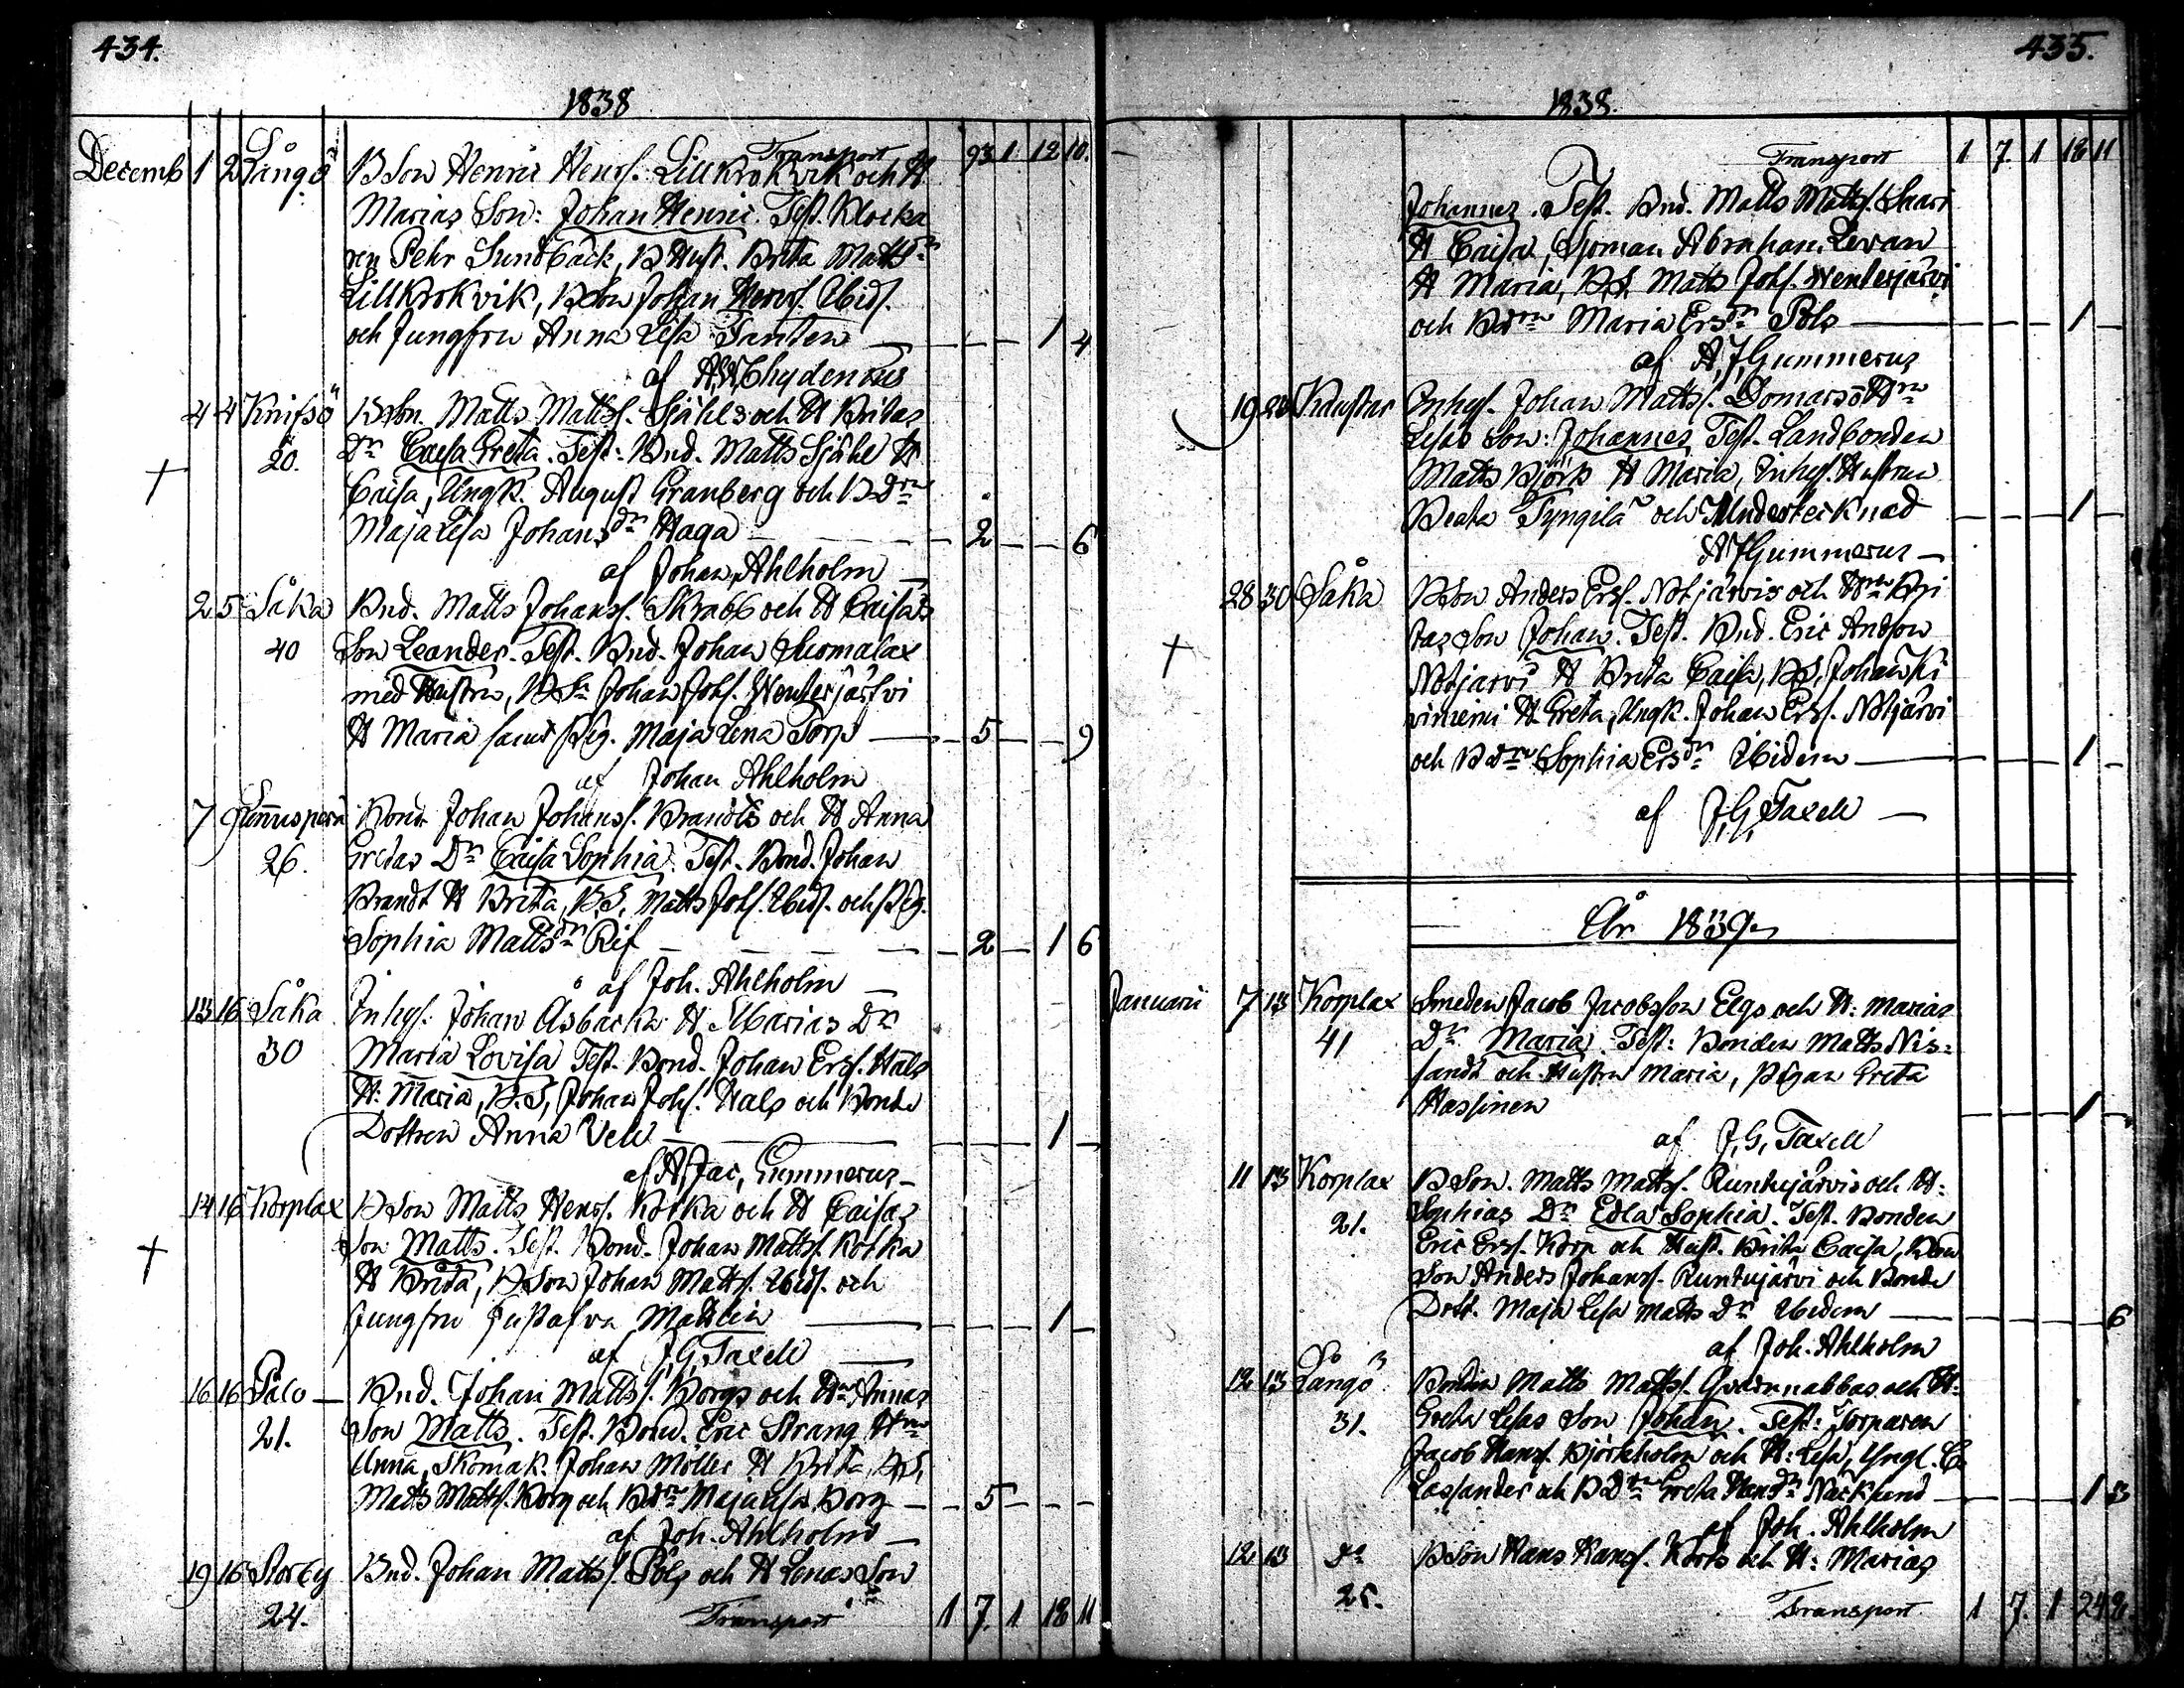 434.
1838
Transport 93 1 12 10.
Decemb 1 2 Långö BSon Henric Henrs. Lillkrokvik och H
Marias Son: Johan Henric. Test. Klocka
ren Pehr Sundbäck, B Hust. Brita Matts dr
Lillkrokvik, BSon Johan Henrs. Ibids.
och Jungfru Anna Lisa Santen — — — 1 4
af A. W. Chydenius
4 4 Knifsö BSon. Matts Mattss. Sjähls och H Britas
20. Dr Caisa Greta. Test: Bnd. Matts Sjähl H
Caisa, Ungk. August Granberg och B Dr
Maja Lisa Johans dr Haga — 2 — — 6
af Johan Ahlholm —
2 5 Såka Bnd. Matts Johanss. Skrabb och H Caisas
40 Son Leander. Test. Bnd. Johan Suomalax
med Hustru, BSn Johan Johs. Wenterjärfvi
H Maria samt Pig. Maja Lena Torp — — 5 — — 9
af Johan Ahlholm
7 9 Bond. Johan Johanss. Brandts och H Anna
26. Gretas Dr Caisa Sophia. Test. Bond. Johan
Brandt H Brita, B.S. Matts Johs. Ibids. och Pig.
Sophia Matts dr Rif — — 2 — 1 6
af Joh. Ahlholm —
13 16 Såka Inhys: Johan Åsbacka H Marias Dr
30 Maria Lovisa Test. Bond. Johan Erss. Hals
H: Maria, B.S, Johan Johs. Hals och Bonde
Dottren Anna — — — 1 —
af A. Jac, Gummerus —
14 16 Korplax BSon Matts Henrs. Kocka och H Caisas
Son Matts. Test. Bond. Johan Mattss. Kocka
H Brita, BSon Johan Mattss. Ibids. och
Jungfru Gustafva Matlin — — — — 1 —
af J, G, Taxell —
16 16 Palo — Bnd. Johan Mattss. Borgs och Hn Annas
21. Son Matts. Test. Bond. Eric Strang Hn
Anna, Skomak. Johan Möller H Brita, B.S,
Matts Mattss. Borg och B Dr Maja Lisa Borg — — 5 — — —
af Joh. Ahlholm —
19 16 Storby Bnd. Johan Mattss. Pols och H Lenas Son
24. Transport 1 7. 1 18 11
435.
1838.
Transport 1 7. 1 18 11
Johannes. Test. Bnd. Matts Mattss. Saari
H Caisa, Sjöman Abraham Levan
H Maria, B.S. Matts Johs. Wenterjärvi
och B Dr Maria Ers dr Pols — — — — 1 —
af A, J, Gummerus
19 Kaustar Inhys. Johan Mattss. Domarsö Hn
Lisas Son: Johannes Test. Landbonden
Matts Björk H Maria, Inhys. Hustrun
Beata Tyngilä och Undertecknad — — — 1 —
A J Gummerus —
28 30 Såka BSon Anders Erss. Notjärvis och Hn Bri
tas Son Johan. Test. Bnd. Eric Andson
Notjärvi H Brita Caisa, B.S, Johan Ki
viniemi H Greta, Ungk. Johan Erss. Notjärvi
och B Dr Sophia Ers dr Ibidem — — — — 1 —
af J, G, Taxell —
År 1839
Januarii 7 13 Korplax Smeden Jacob Jacobsson Elgs och H: Marias
41 Dr Maria. Test: Bonden Matts Nis-
sandt och Hustru Maria, Pigan Greta
Hassinen — — — 1 —
af J, G, Taxell
11 13 Korplax BSon. Matts Mattss. Runtujärvis och H:
21. Sophias Dr Edla Sophia. Test. Bonden
Eric Erss. Korp och Hust. Brita Caisa, Bon
Son Anders Johanss. Runtujärvi och Bonde
Dott. Maja Lisa Matts Dr Ibidem — — — — 6
af Joh. Ahlholm
12 13 Långö Bonden Matts Mattss. och H:
31. Greta Lisas Son Johan. Test: Torparen
Jacob Hanss. Björkholm och H: Lisa, Yngl. C.
Lassander och B Dr Greta Hans dr Näcksund — — — — 1 3
af Joh. Ahlholm
12 13 Do BSon Hans Hanss. Korts och H: Marias
25. Transport 1 7. 1 24 8.